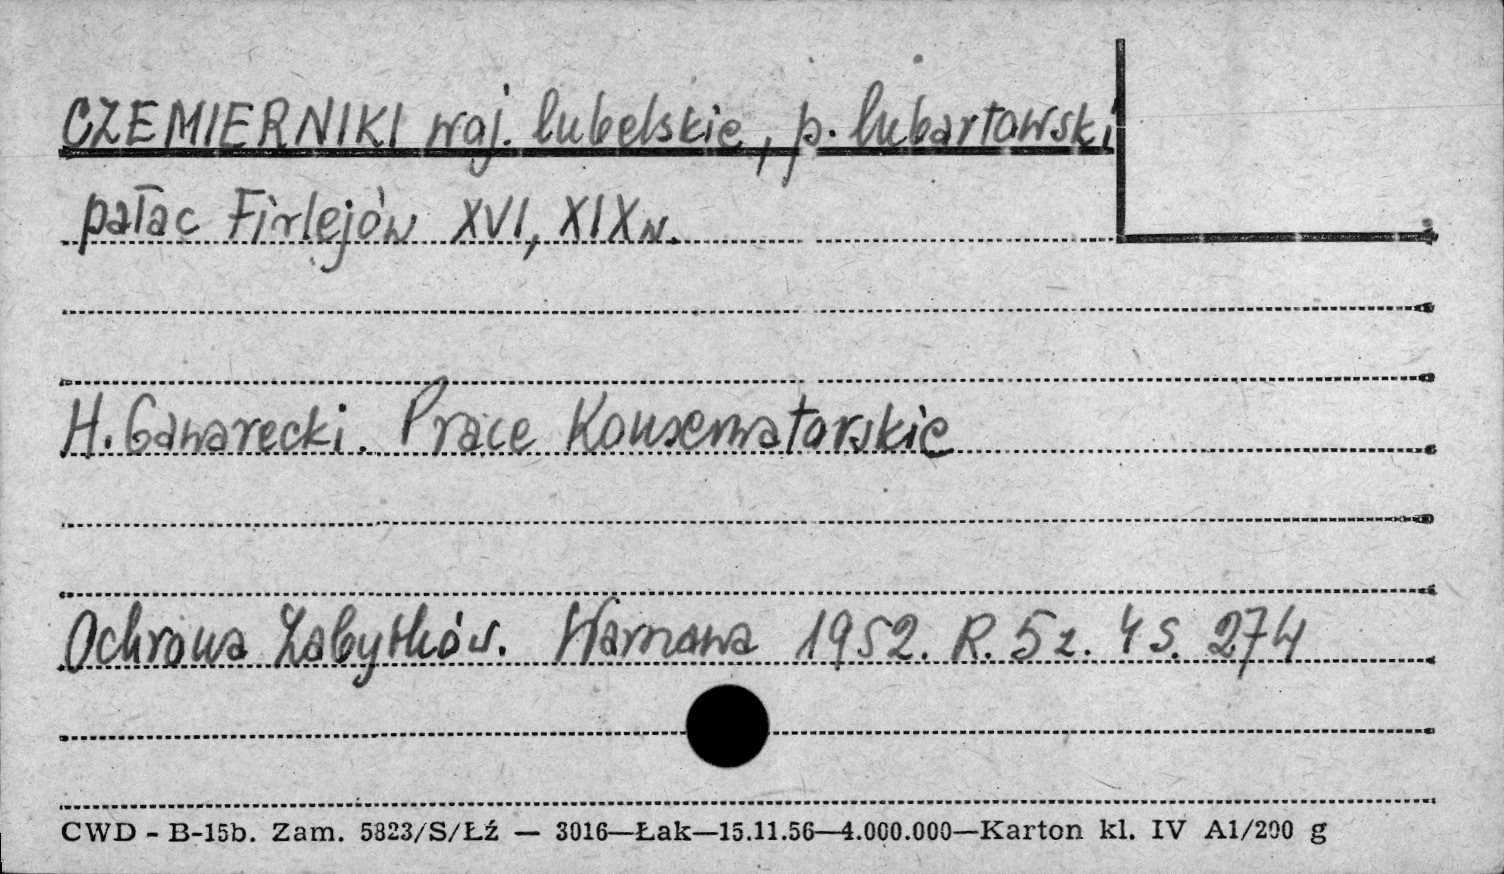 CZEMIERNIKI woj. lubelskie, p. lubartowski
pałac Firlejów XVI, XIX w.
H. Gawarecki. Prace Konserwatorskie
Ochrona Zabytków. Warszawa 1952. R. 5 z. 4 s. 274
CWD - B-15b. Zam. 5823/S/Łź — 3016—Łak—15.11.56—4.000.000—Karton kl. IV A1/200 g